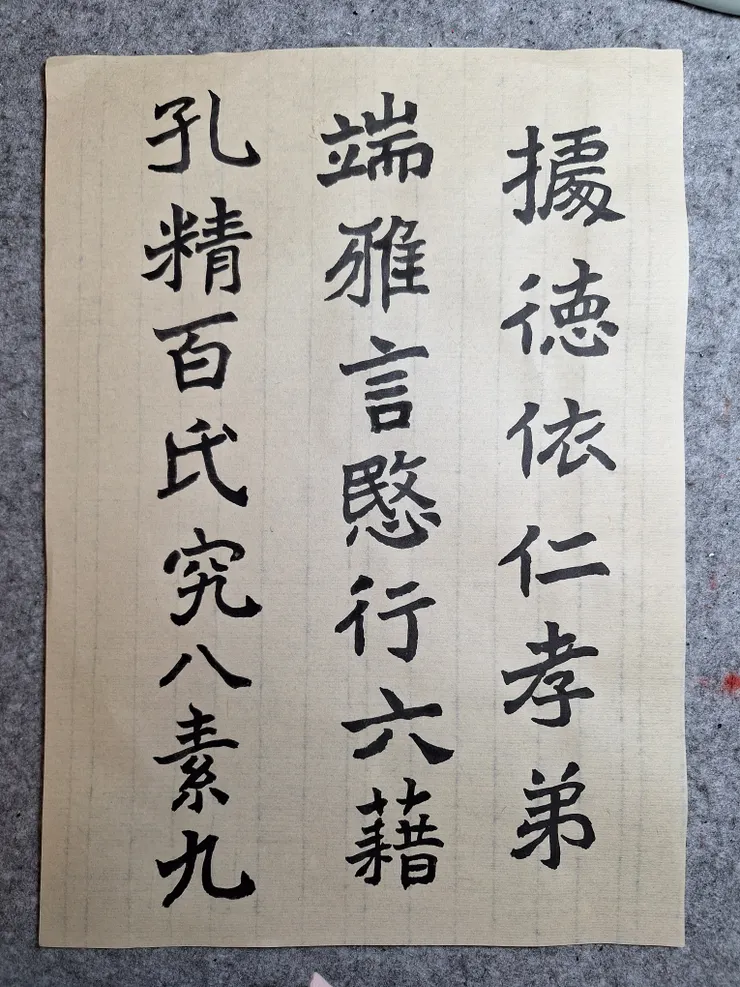 據徳依仁孝弟
端雅言愍行六藉
孔精百氏究八素九